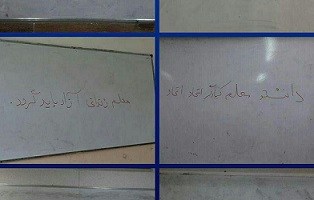 دانشجو معلم کارگر اتحاد اتحاد
معلم زندانی آزاد باید گردد.